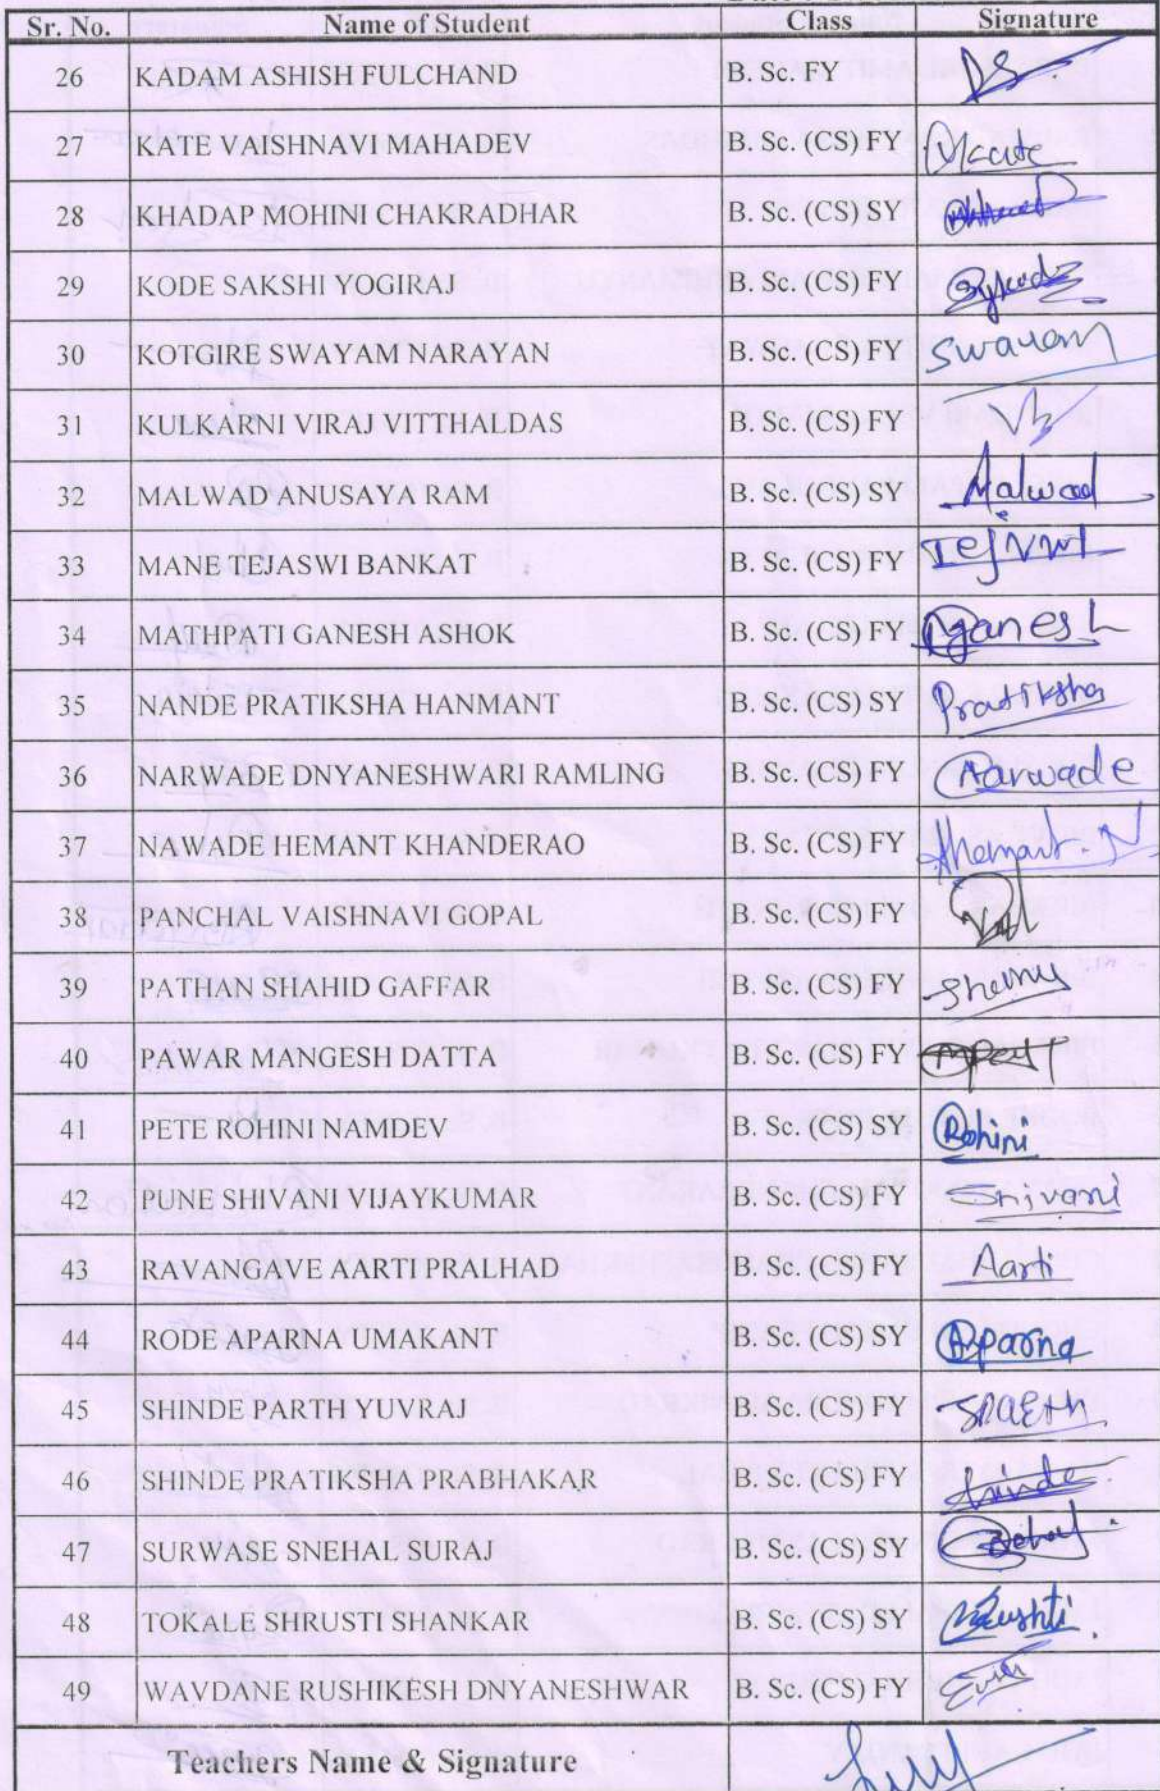 Sr. No. Name of Student Class Signature
26 KADAM ASHISH FULCHAND B. Sc. FY
27 KATE VAISHNAVI MAHADEV B. Sc. (CS) FY Vkate
28 KHADAP MOHINI CHAKRADHAR B. Sc. (CS) SY
29 KODE SAKSHI YOGIRAJ B. Sc. (CS) FY
30 KOTGIRE SWAYAM NARAYAN B. Sc. (CS) FY Swayam
31 KULKARNI VIRAJ VITTHALDAS B. Sc. (CS) FY
32 MALWAD ANUSAYA RAM B. Sc. (CS) SY Malwad
33 MANE TEJASWI BANKAT B. Sc. (CS) FY
34 MATHPATI GANESH ASHOK B. Sc. (CS) FY Ganesh
35 NANDE PRATIKSHA HANMANT B. Sc. (CS) SY Pratiksha
36 NARWADE DNYANESHWARI RAMLING B. Sc. (CS) FY Narwade
37 NAWADE HEMANT KHANDERAO B. Sc. (CS) FY Hemant. N
38 PANCHAL VAISHNAVI GOPAL B. Sc. (CS) FY
39 PATHAN SHAHID GAFFAR B. Sc. (CS) FY
40 PAWAR MANGESH DATTA B. Sc. (CS) FY
41 PETE ROHINI NAMDEV B. Sc. (CS) SY Rohini
42 PUNE SHIVANI VIJAYKUMAR B. Sc. (CS) FY Shivani
43 RAVANGAVE AARTI PRALHAD B. Sc. (CS) FY Aarti
44 RODE APARNA UMAKANT B. Sc. (CS) SY Aparna
45 SHINDE PARTH YUVRAJ B. Sc. (CS) FY
46 SHINDE PRATIKSHA PRABHAKAR B. Sc. (CS) FY Shinde
47 SURWASE SNEHAL SURAJ B. Sc. (CS) SY
48 TOKALE SHRUSTI SHANKAR B. Sc. (CS) SY
49 WAVDANE RUSHIKESH DNYANESHWAR B. Sc. (CS) FY
Teachers Name & Signature